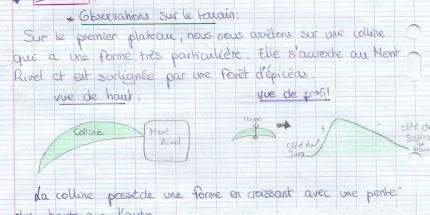 * Observations sur le terrain:
Sur le premier plateau, nous nous arrêtons sur une colline
qui a une forme très particulière. Elle s'accroche au Mont
Rivel et est surlignée par une forêt d'épicéas.
vue de haut:
vue de profil
Colline
Mont
Rivel
coupe
côté du
Jura
+
-
côté de
la colline possède une forme en croissant avec une pente